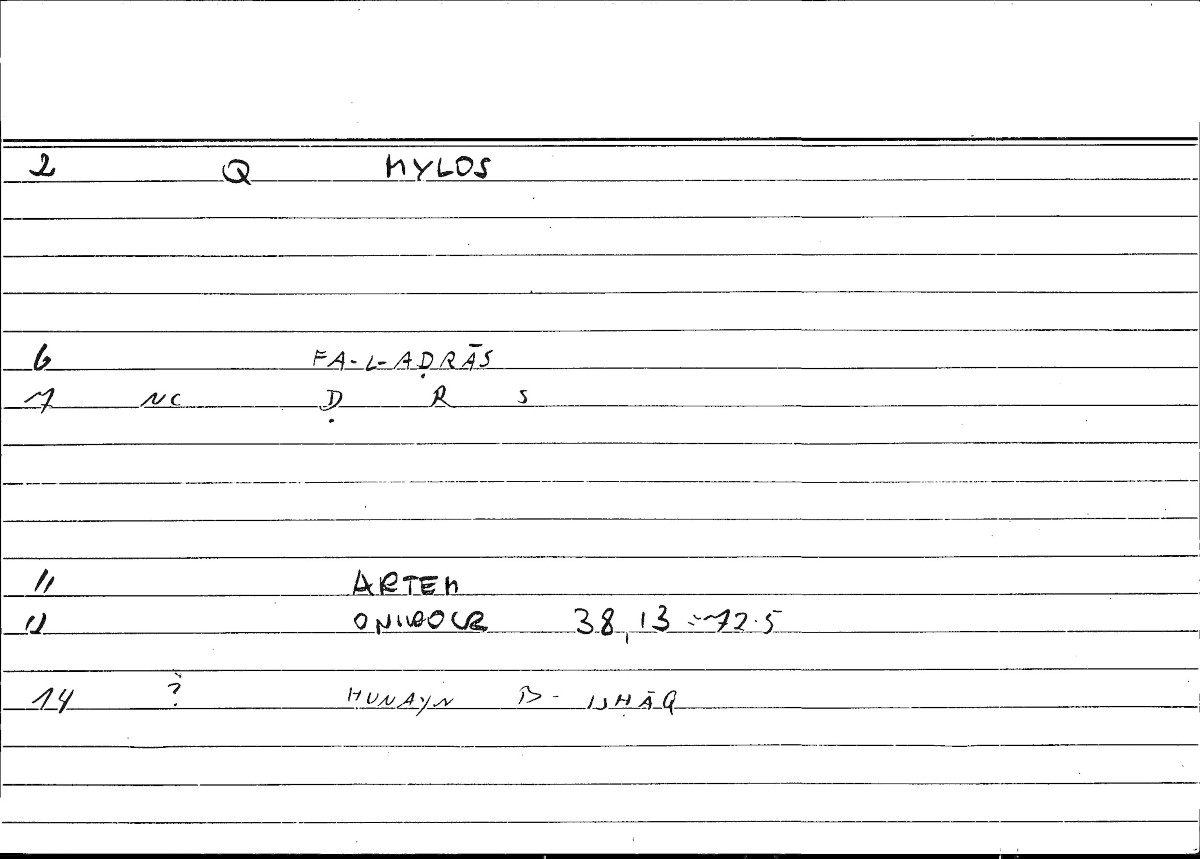 2 Q MYLOS
6 FA-L-AḌRĀS
7 NC Ḍ R S
11 ARTEM
12 ONIROCR 38,13 = 72.5
14 ? HUNAYN B- ISḤĀQ